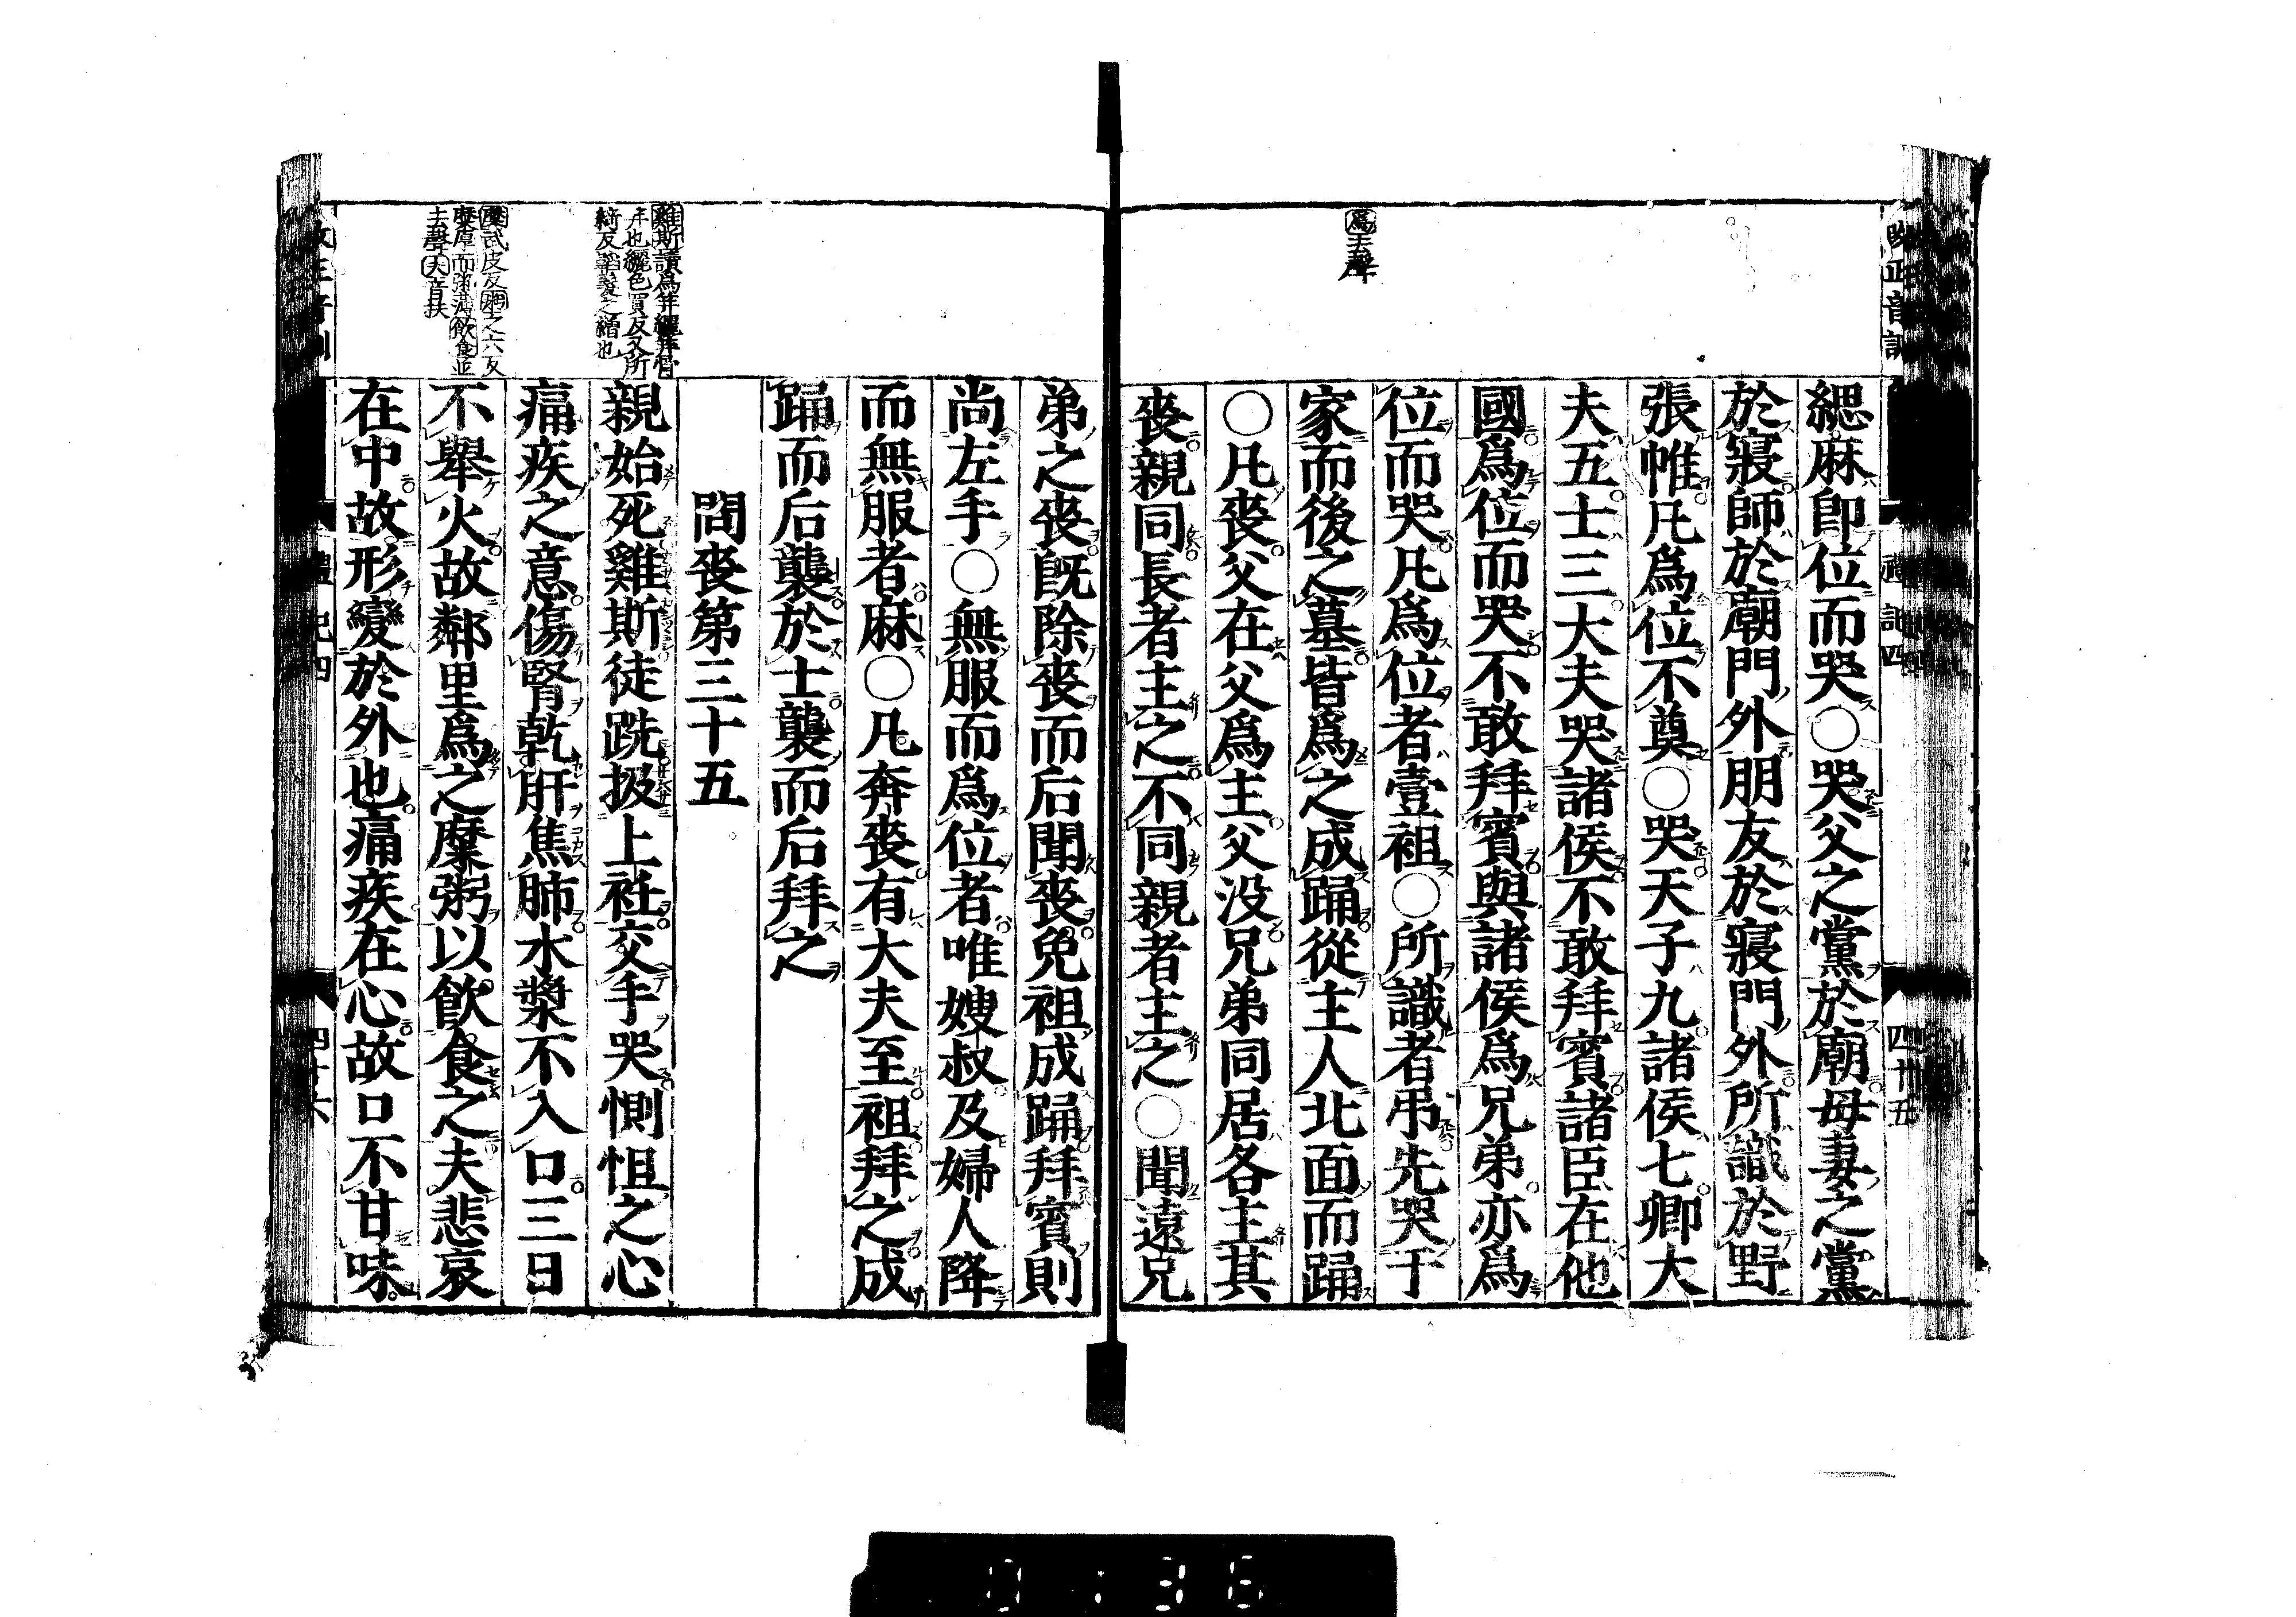 爲去聲
緦麻卽位而哭○哭父之黨於廟母妻之黨
於寢師於廟門外朋友於寢門外所識於野
張帷凡爲位不奠○哭天子九諸侯七卿大
夫五士三大夫哭諸侯不敢拜賓諸臣在他
國爲位而哭不敢拜賓與諸侯爲兄弟亦爲
位而哭凡爲位者壹袒○所識者弔先哭于
家而後之墓皆爲之成踊從主人北面而踊
○凡喪父在父爲主父没兄弟同居各主其
喪親同長者主之不同親者主之○聞遠兄
弟之喪旣除喪而后聞喪免袒成踊拜賓則
尚左手○無服而爲位者唯嫂叔及婦人降
而無服者麻○凡奔喪有大夫至袒拜之成
踊而后襲於士襲而后拜之
問喪第三十五
雞斯讀爲笄纚笄骨
笄也纚色買反又所
綺反韜髮之繒也
親始死雞斯徒跣扱上衽交手哭惻怛之心
痛疾之意傷腎乾肝焦肺水漿不入口三日
糜武皮反粥之六反
糜厚而粥薄飲食並
去聲夫音扶
不舉火故鄰里爲之糜粥以飲食之夫悲哀
在中故形變於外也痛疾在心故口不甘味
禮記四
四十六